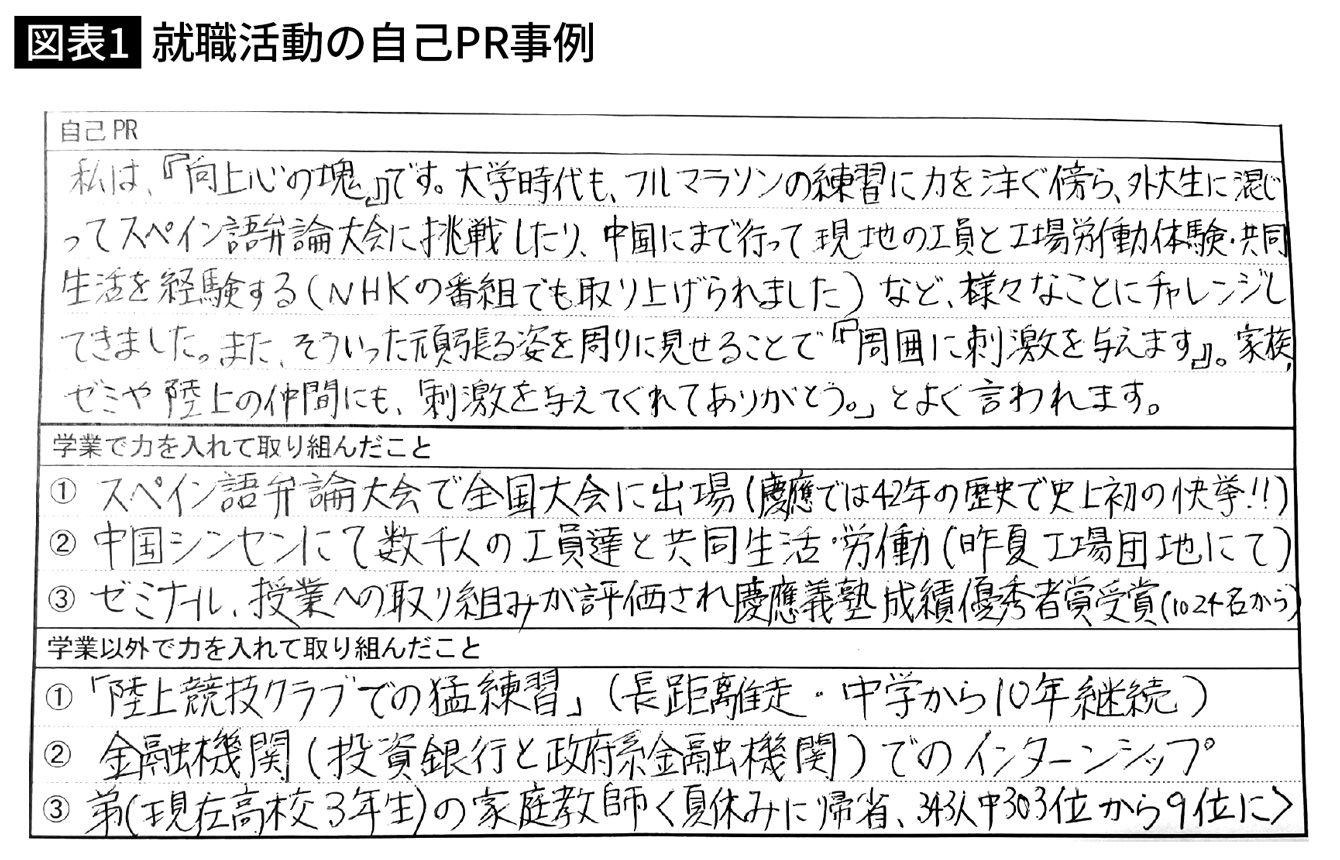 図表1 就職活動の自己PR事例
自己PR
私は、『向上心の塊』です。大学時代も、フルマラソンの練習に力を注ぐ傍ら、外大生に混じ
ってスペイン語弁論大会に挑戦したり、中国にまで行って現地の工員と工場労働体験・共同
生活を経験する(NHKの番組でも取り上げられました)など、様々なことにチャレンジし
てきました。また、そういった頑張る姿を周りに見せることで『周囲に刺激を与えます』。家族、
ゼミや陸上の仲間にも、「刺激を与えてくれてありがとう。」とよく言われます。
学業で力を入れて取り組んだこと
① スペイン語弁論大会で全国大会に出場(慶應では42年の歴史で史上初の快挙!!)
② 中国シンセンにて数千人の工員達と共同生活・労働(昨夏工場団地にて)
③ ゼミナール、授業への取り組みが評価され慶應義塾成績優秀者賞受賞(1024名から)
学業以外で力を入れて取り組んだこと
① 「陸上競技クラブでの猛練習」(長距離走・中学から10年継続)
② 金融機関(投資銀行と政府系金融機関)でのインターンシップ
③ 弟(現在高校3年生)の家庭教師<夏休みに帰省、343人中303位から9位に>